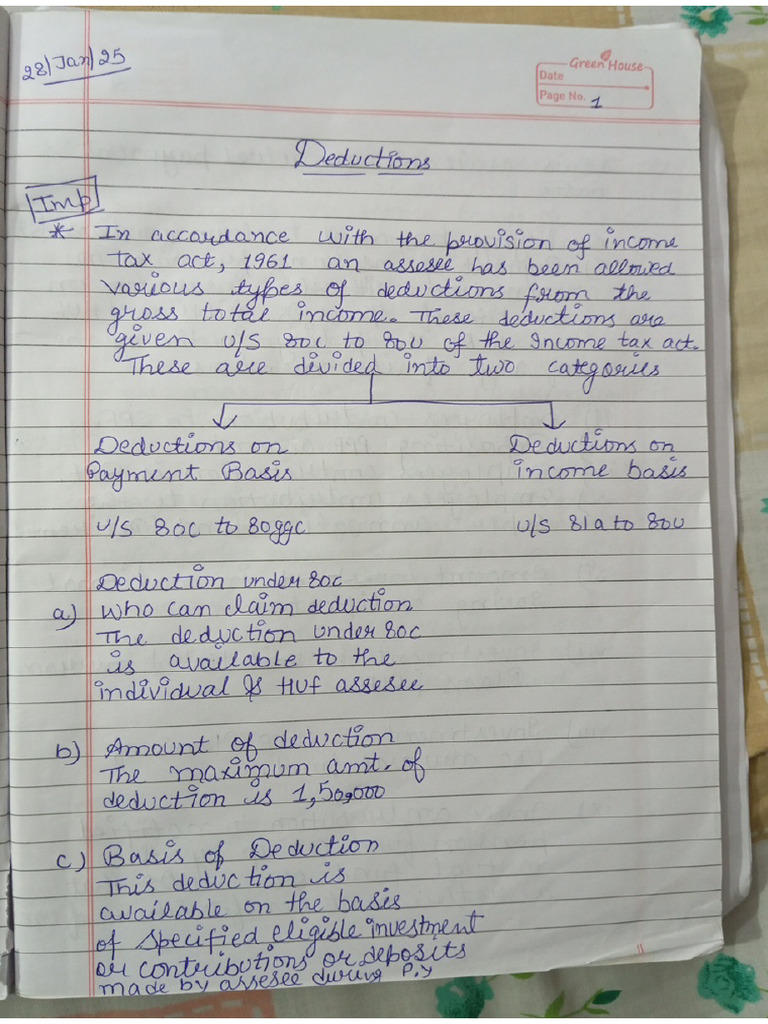 28/Jan/25
Green House
Date
Page No. 1
Deductions
Imp
* In accordance with the provision of income
tax act, 1961 an assesee has been allowed
various types of deductions from the
gross total income. These deductions are
given U/S 80C to 80U of the Income tax act.
These are divided into two categories
Deductions on
Payment Basis
U/S 80C to 80ggc
Deductions on
income basis
U/S 81a to 80U
Deduction under 80C
a) Who can claim deduction
The deduction under 80C
is available to the
individual & Huf assesee
b) Amount of deduction
The maximum amt. of
deduction is 1,50,000
c) Basis of Deduction
This deduction is
available on the basis
of specified eligible investment
or contributions or deposits
made by assesee during P.y